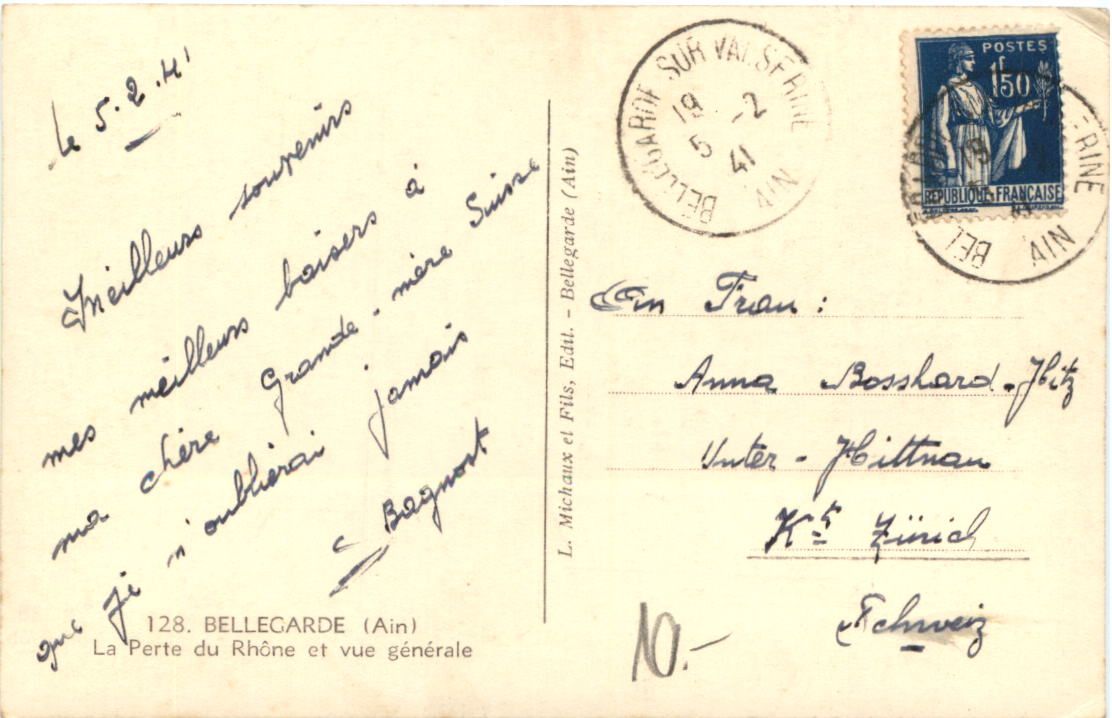 le 5.2.41
Meilleurs souvenirs
mes meilleurs baisers à
ma chère Grande-mère Suisse
que je n'oublierai jamais
Bagnost
128. BELLEGARDE (Ain)
La Perte du Rhône et vue générale
L. Michaux et Fils, Edit. - Bellegarde (Ain)
BELLEGARDE SUR VALSERINE
19 -2
5 41
AIN
POSTES
1F50
RÉPUBLIQUE FRANÇAISE
BEL ERINE
AIN
An Frau:
Anna Bosshard-Hitz
Unter-Hittnau
Kt Zürich
Schweiz
10.-